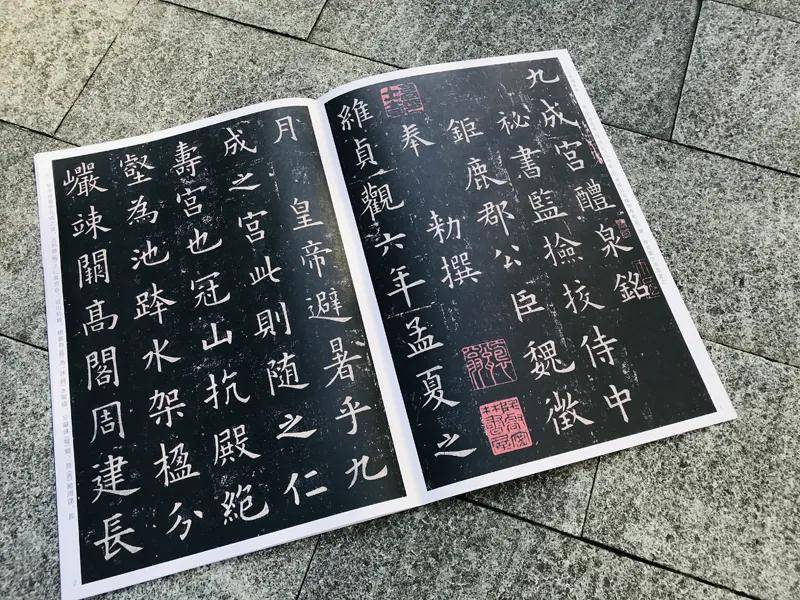 九成宮醴泉銘
秘書監撿挍侍中
鉅鹿郡公臣魏徵
奉勑撰
維貞觀六年孟夏之
月皇帝避暑乎九
成之宮此則随之仁
壽宮也冠山抗殿絕
壑為池跨水架楹分
巖竦闕高閣周建長